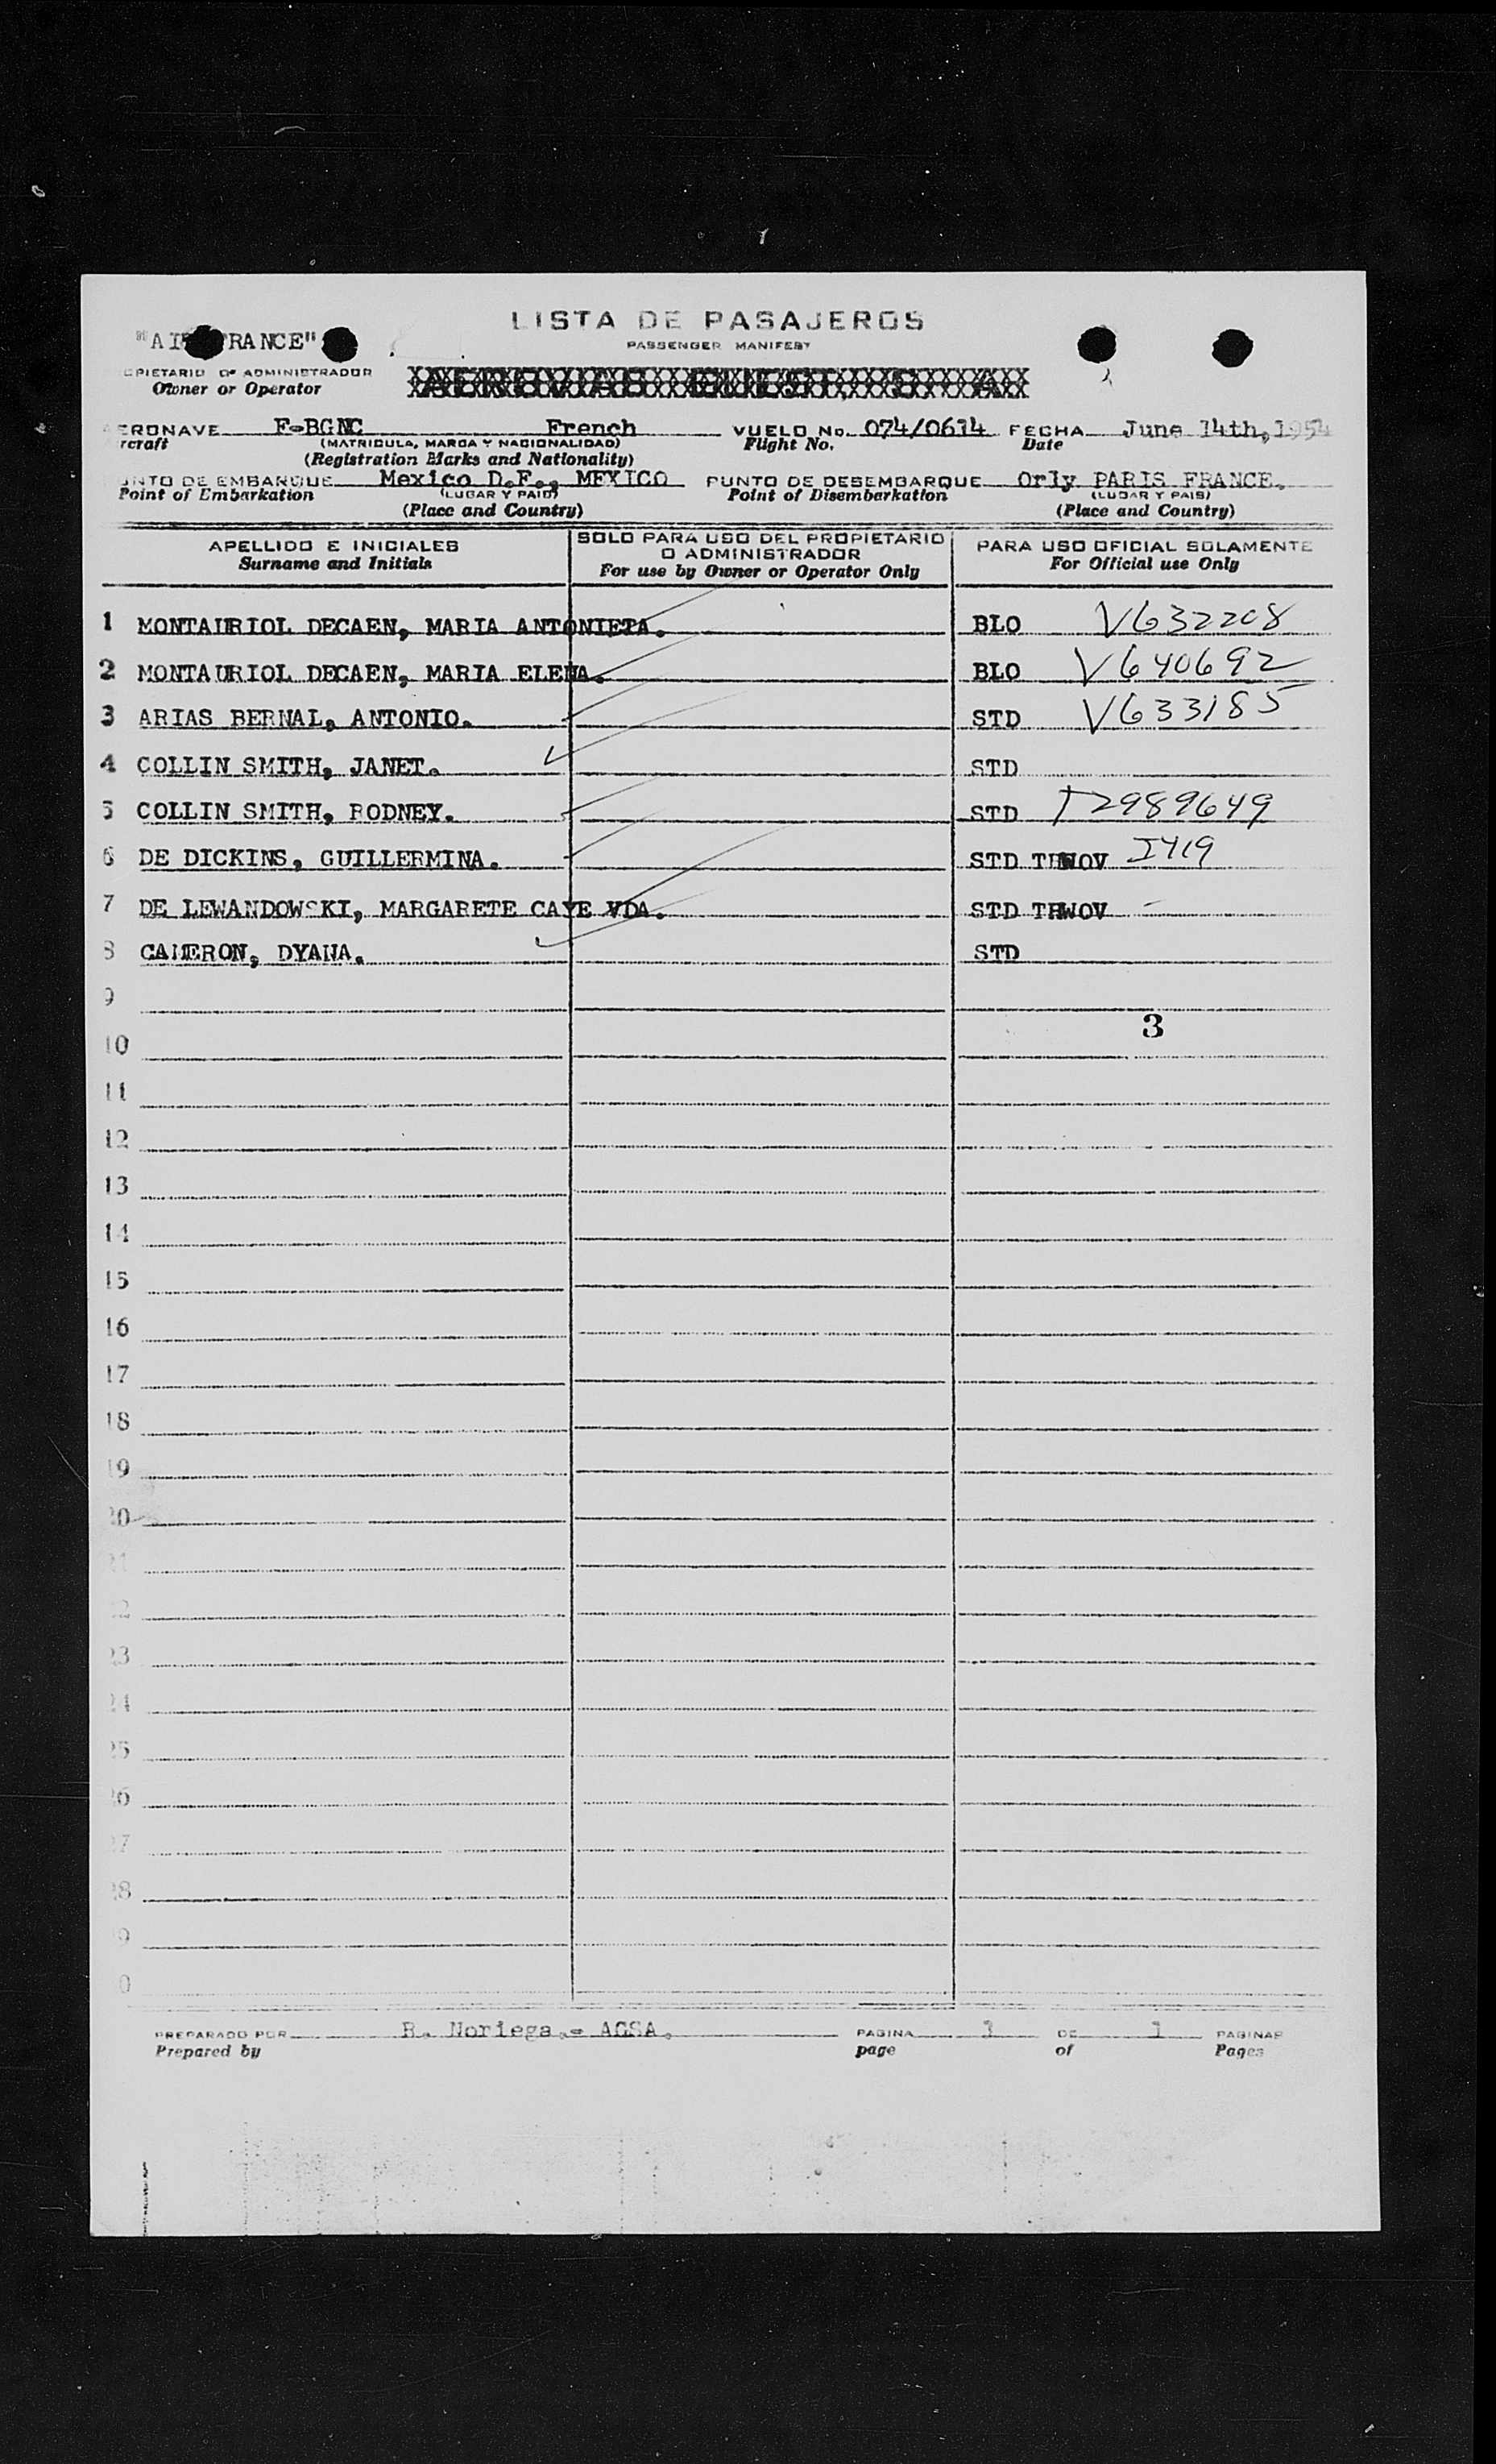 LISTA DE PASAJEROS
PASSENGER MANIFEST
"AI RANCE"
OPIETARIO O ADMINISTRADOR
Owner or Operator
AEROVIAS GUEST, S. A.
ERONAVE F-BGNC French VUELO No. 074/0614 FECHA June 14th, 1954
rcraft (MATRICULA, MARCA Y NACIONALIDAD) Flight No. Date
(Registration Marks and Nationality)
UNTO DE EMBARQUE Mexico D.F., MEXICO PUNTO DE DESEMBARQUE Orly PARIS FRANCE.
Point of Embarkation (LUGAR Y PAIS) Point of Disembarkation (LUGAR Y PAIS)
(Place and Country) (Place and Country)
APELLIDO E INICIALES SOLO PARA USO DEL PROPIETARIO O ADMINISTRADOR PARA USO OFICIAL SOLAMENTE
Surname and Initials For use by Owner or Operator Only For Official use Only
1 MONTAURIOL DECAEN, MARIA ANTONIETA. BLO V632208
2 MONTAURIOL DECAEN, MARIA ELENA. BLO V640692
3 ARIAS BERNAL, ANTONIO. STD V633185
4 COLLIN SMITH, JANET. STD
5 COLLIN SMITH, RODNEY. STD T2989649
6 DE DICKINS, GUILLERMINA. STD TRWOV I419
7 DE LEWANDOWSKI, MARGARETE CAYE VDA. STD TRWOV -
8 CAMERON, DYANA. STD
9
3
10
11
12
13
14
15
16
17
18
19
20
21
22
23
24
25
26
27
28
9
0
PREPARADO POR R. Noriega.- AGSA. PAGINA 1 DE 1 PAGINAS
Prepared by page of Pages